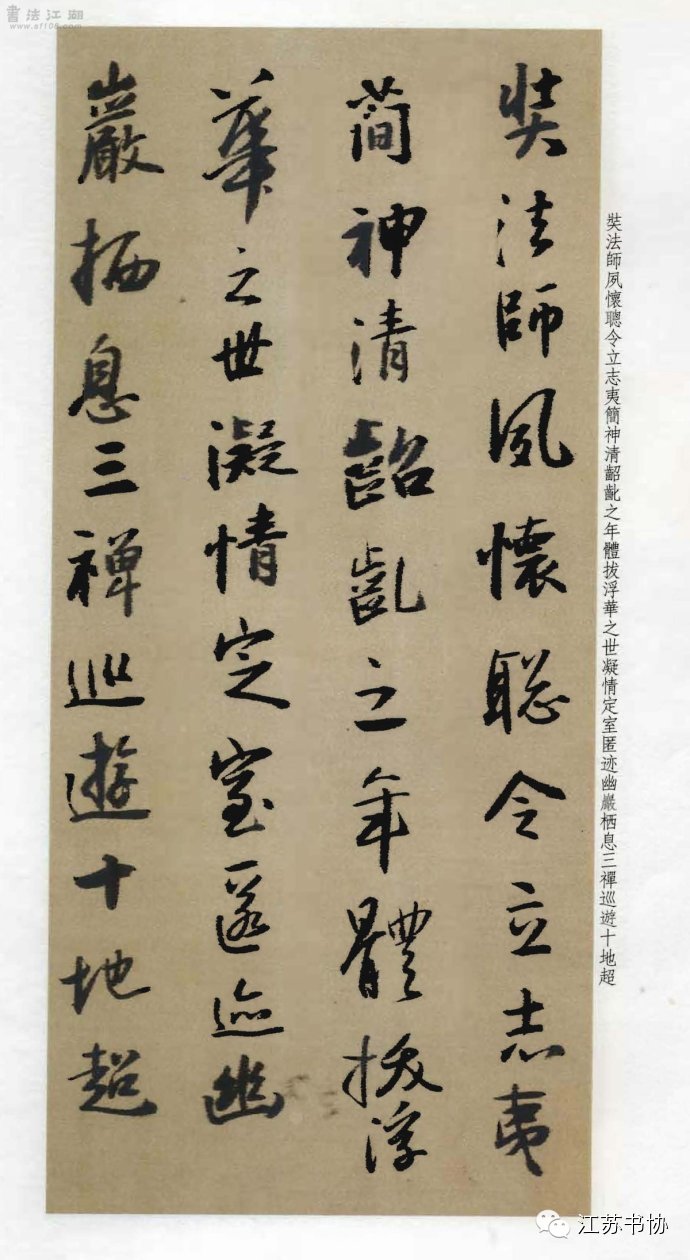 書法江湖
www.sf108.com
奘法師夙懷聰令立志夷
簡神清齠齔之年體拔浮
華之世凝情定室匿迹幽
巖栖息三禪巡遊十地超
奘法師夙懷聰令立志夷簡神清齠齔之年體拔浮華之世凝情定室匿迹幽巖栖息三禪巡遊十地超
江苏书协